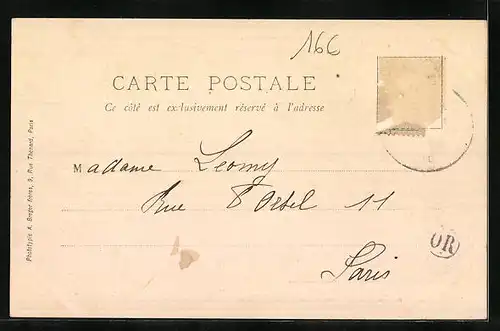 166
CARTE POSTALE
Ce côté est exclusivement réservé à l'adresse
Madame Leomy
Rue d'Orsel 11
Paris
OR
Phototypie A. Breger frères, 9, Rue Thénard, Paris